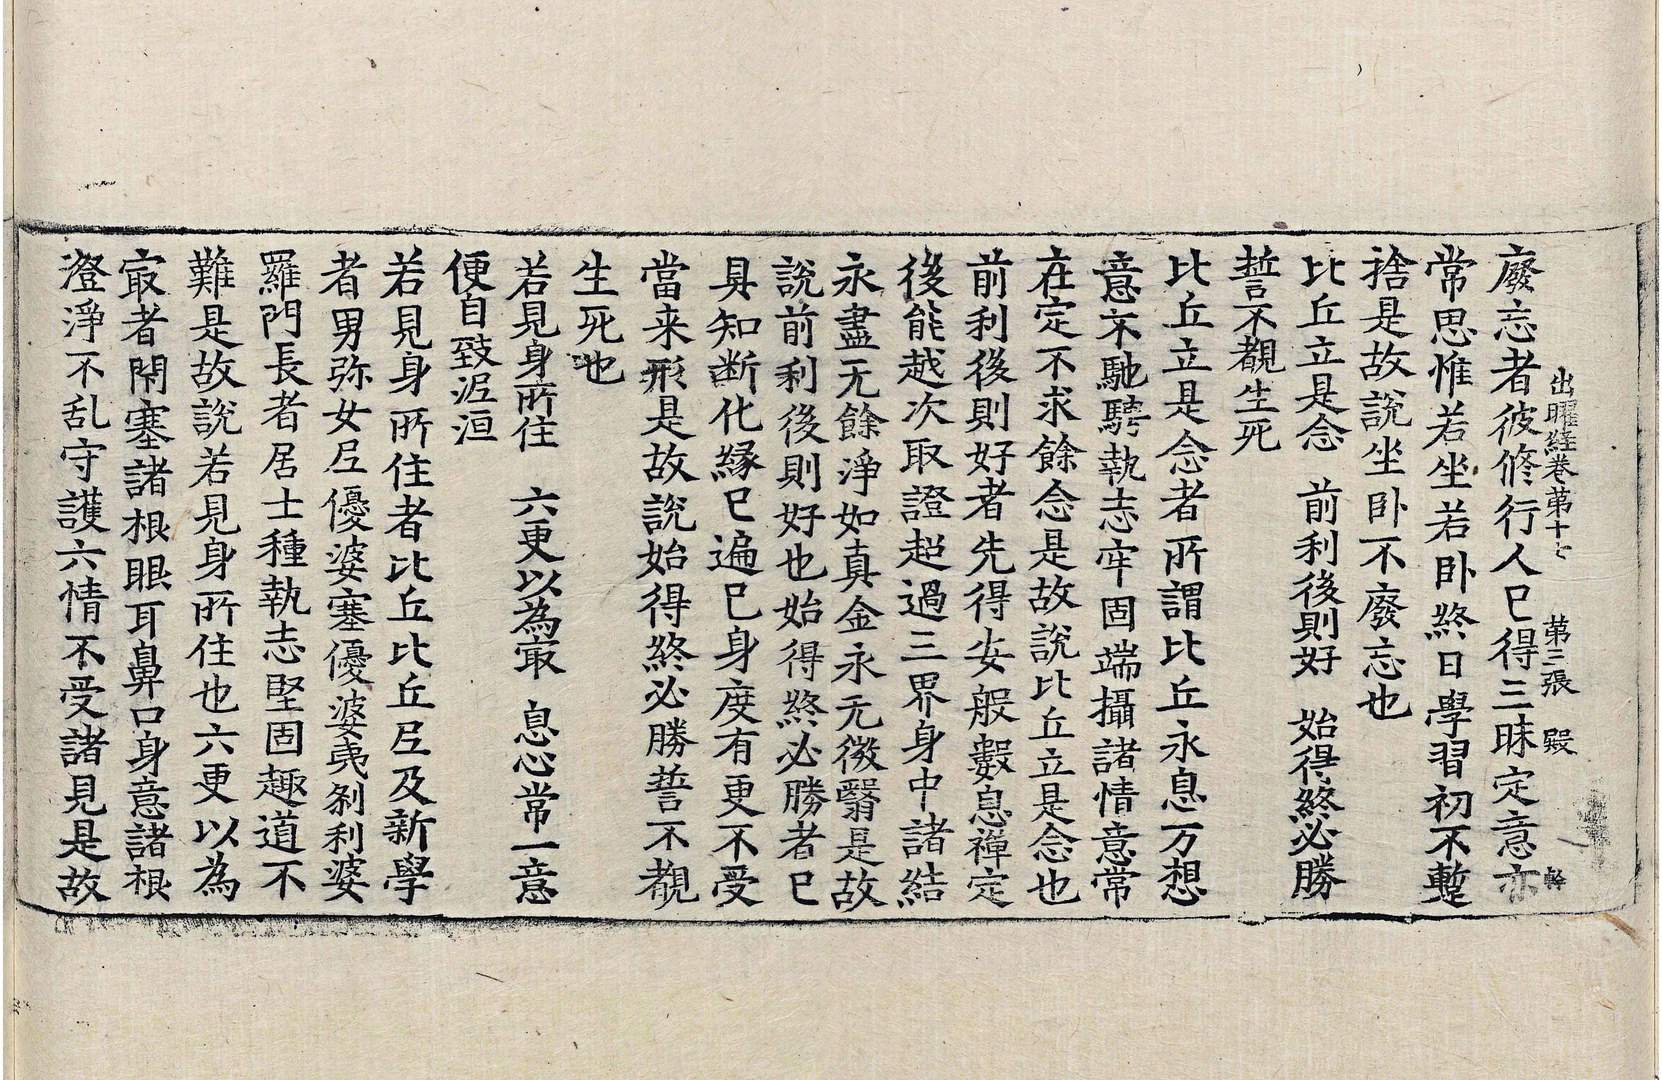 出曜経巻第十七　第三張　殿　幹
廢忘者彼修行人已得三昧定意亦
常思惟若坐若卧終日學習初不蹔
捨是故說坐卧不廢忘也
比丘立是念　前利後則好　始得終必勝
誓不覩生死
比丘立是念者所謂比丘永息万想
意不馳騁執志牢固端攝諸情意常
在定不求餘念是故說比丘立是念也
前利後則好者先得安般數息禪定
後能越次取證超過三界身中諸結
永盡无餘淨如真金永无微翳是故
說前利後則好也始得終必勝者已
具知断化縁已遍已身度有更不受
當来形是故說始得終必勝誓不覩
生死也
若見身所住　六更以為冣　息心常一意
便自致泥洹
若見身所住者比丘比丘尼及新學
者男弥女尼優婆塞優婆夷剎利婆
羅門長者居士種執志堅固趣道不
難是故說若見身所住也六更以為
冣者閇塞諸根眼耳鼻口身意諸根
澄淨不乱守護六情不受諸見是故